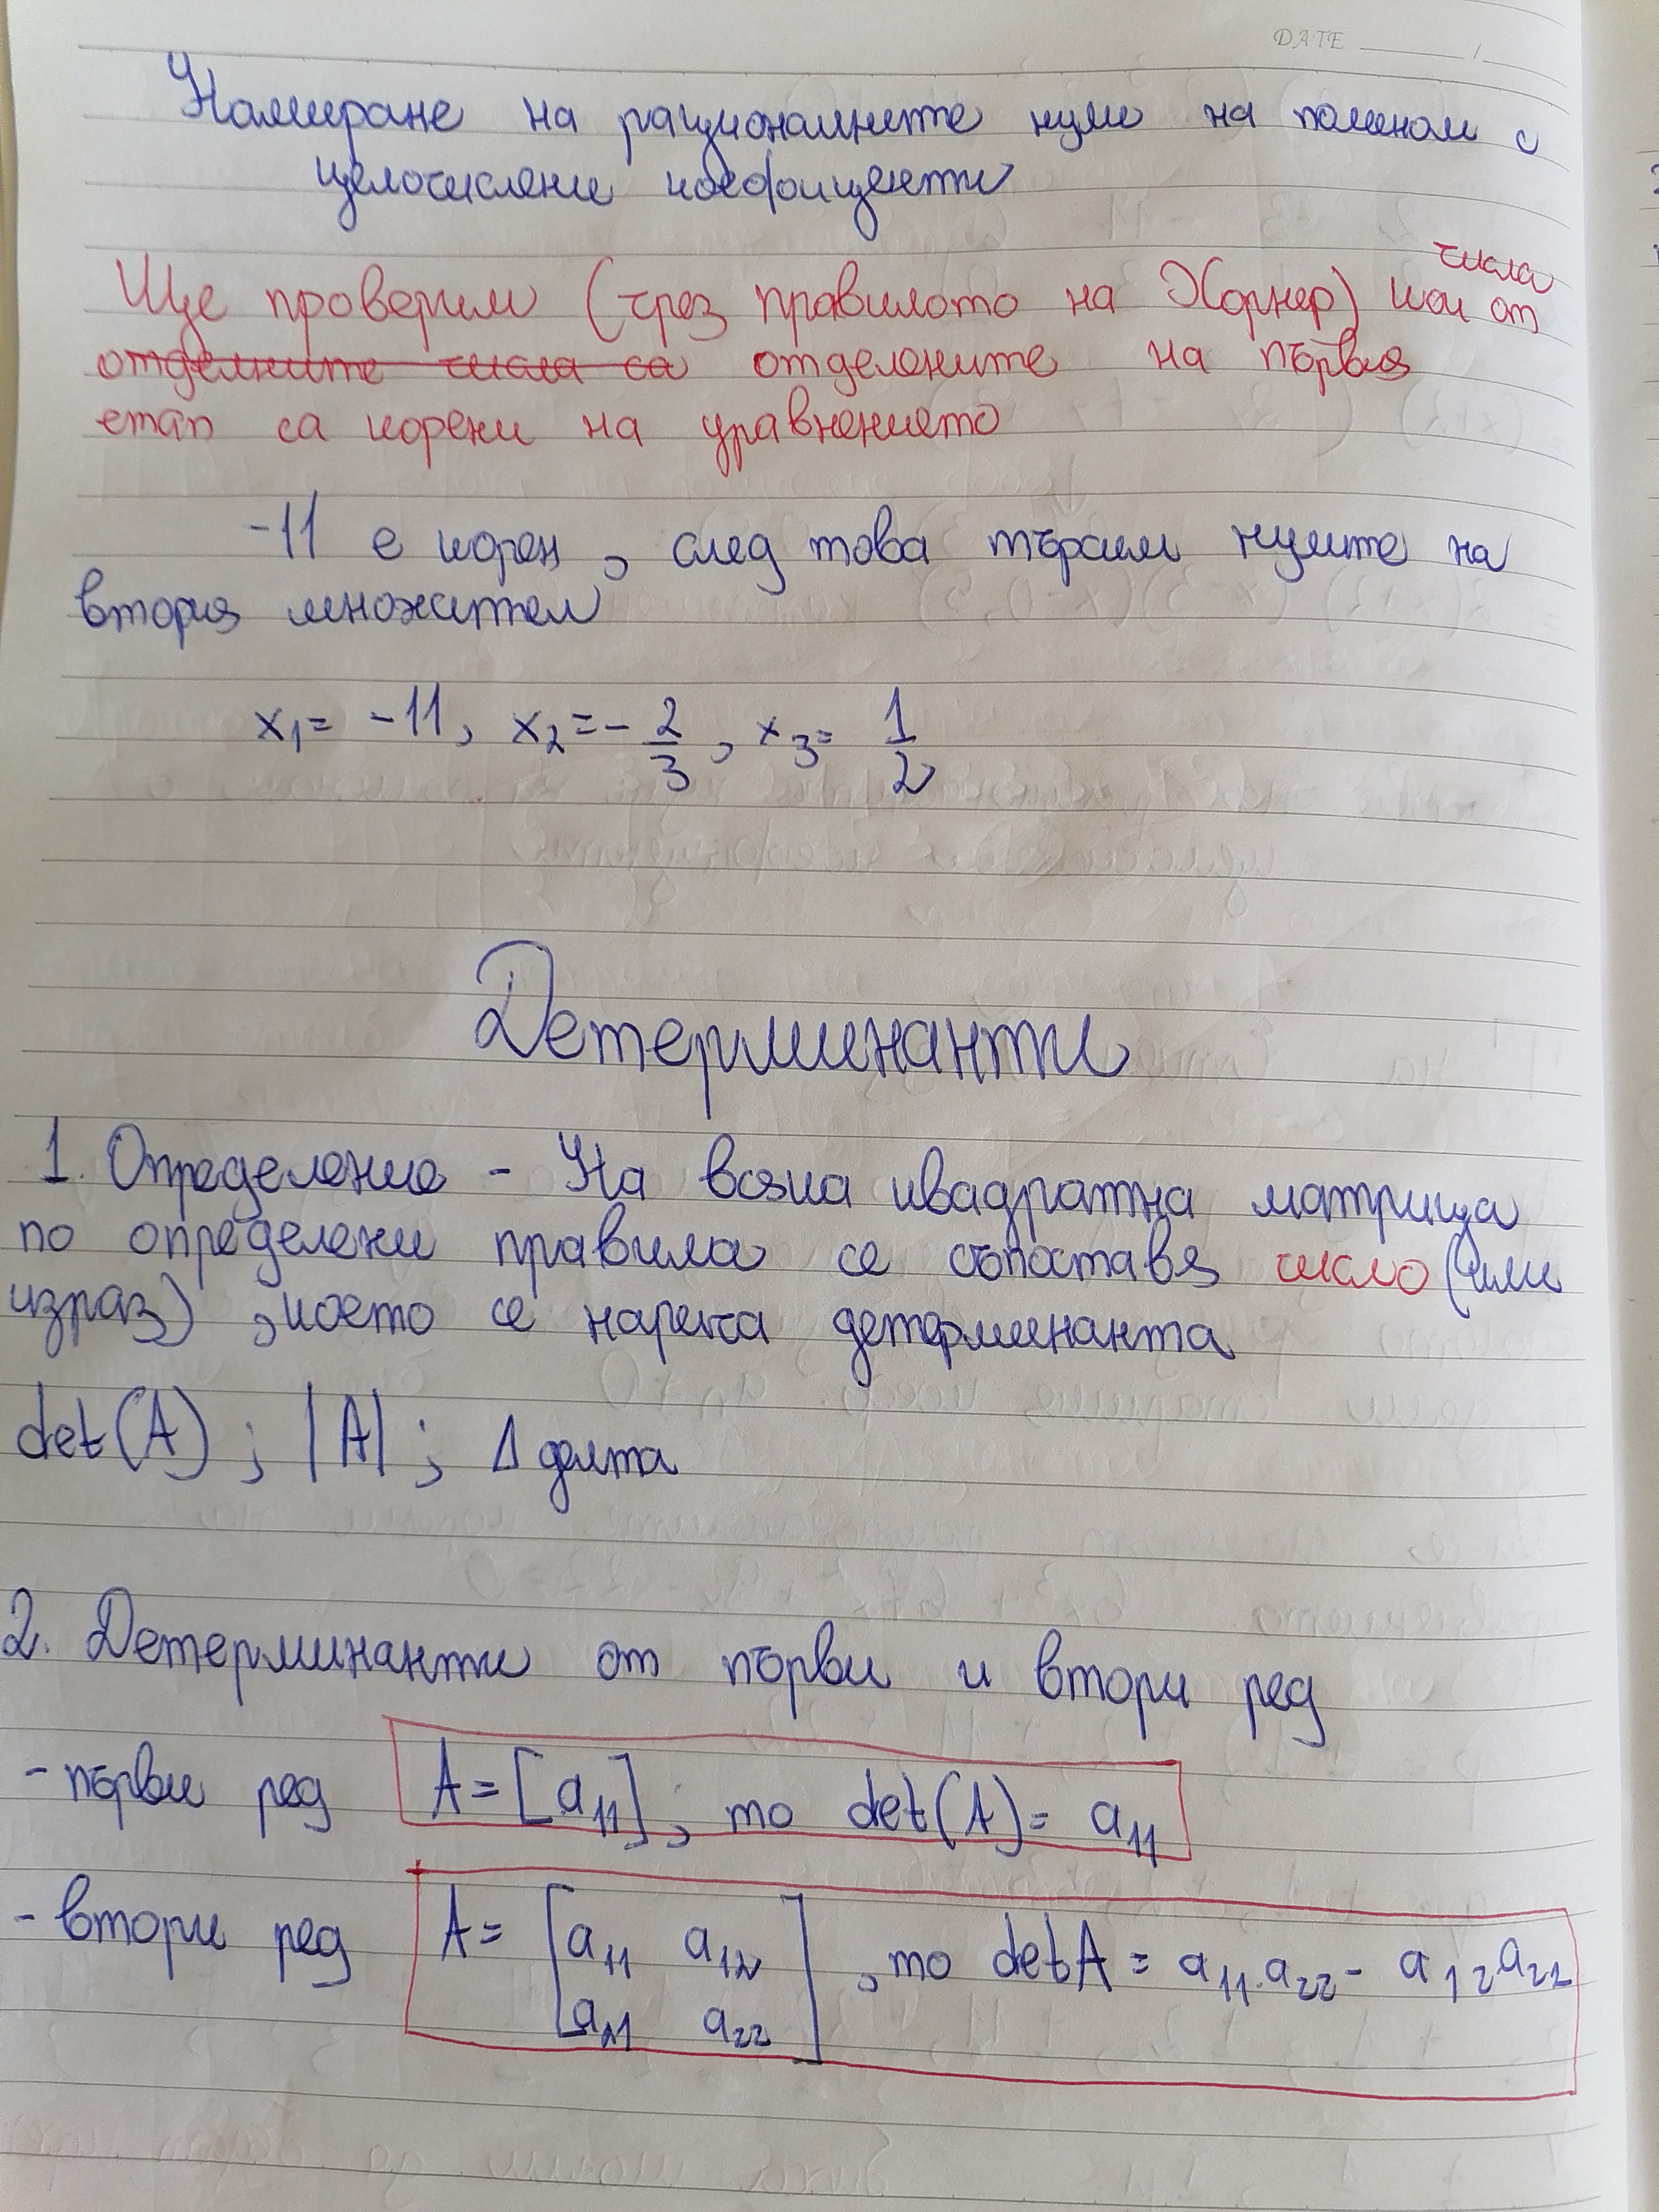 DATE
Намиране на рационалните нули на полином с
целочислени коефициенти
числа
Ще проверим (чрез правилото на Хорнер) кои от
отделните числа са отделените на първия
етап са корени на уравнението
-11 е корен, след това търсим нулите на
втория множител
x₁= -11, x₂=- 2/3, x₃= 1/2
Детерминанти
1. Определение - На всяка квадратна матрица
по определени правила се съпоставя число (или
израз), което се нарича детерминанта
det(A); |A|; Δ делта
2. Детерминанти от първи и втори ред
- първи ред A=[a₁₁]; то det(A)= a₁₁
- втори ред A= [a₁₁ a₁₂
a₂₁ a₂₂], то detA = a₁₁.a₂₂- a₁₂.a₂₁